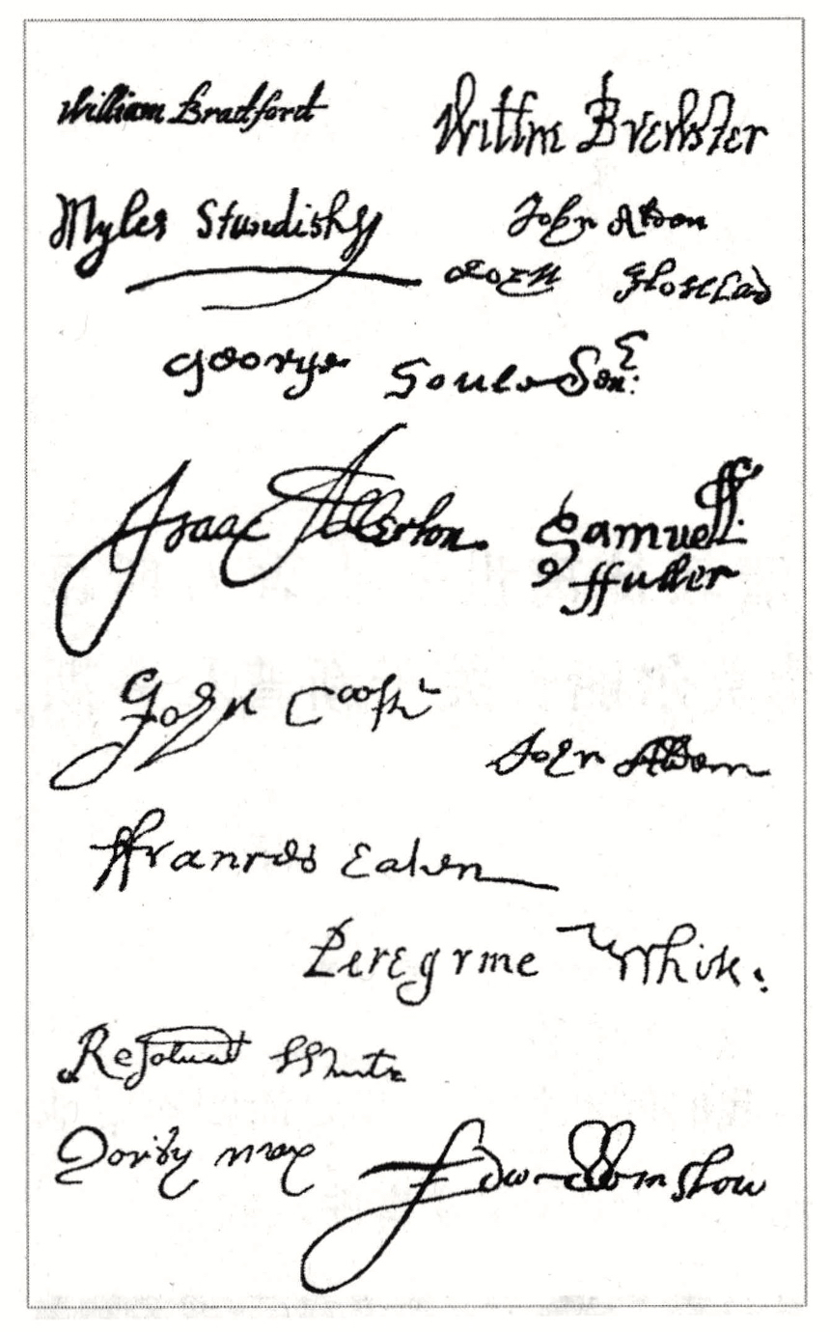 William Bradford
Willm Brewster
Myles Standish
John Alden
George Soule Senr:
Isaac Allerton.
Samuell
ffuller
John Cooke
John Alden
ffrances Eaton
Peregrine White.
Resolved White
Edw Winslow